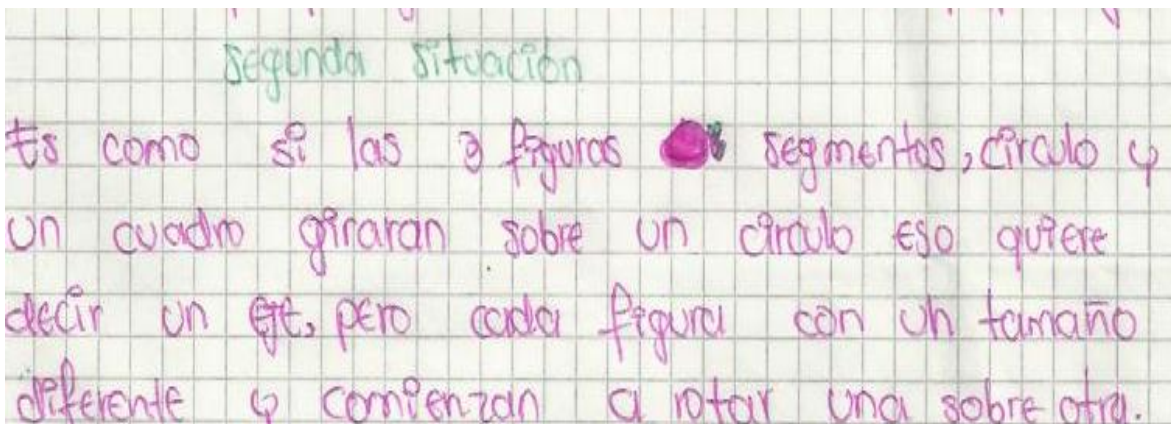 segunda situación
Es como si las 3 figuras segmentos, círculo y
un cuadro giraran sobre un círculo eso quiere
decir un eje, pero cada figura con un tamaño
diferente y comienzan a rotar una sobre otra.